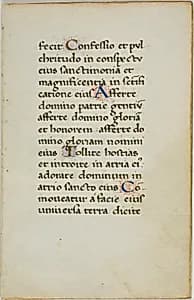 fecit Confessio et pul
chritudo in conspectu
eius sanctimonia et
magnificentia in sctifi
catione eius Afferte
domino patrie gentiū
afferte domino gloriā
et honorem afferte do
mino gloriam nomini
eius Tollite hostias
et introite in atria ei
adorate dominum in
atrio sancto eius Cō
moueatur a facie eius
uniuersa terra dicite